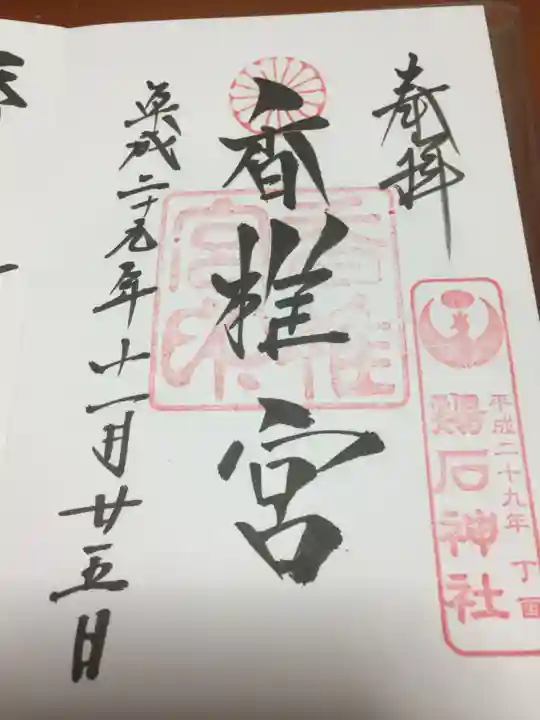 奉拝
平成二十九年 丁酉
鶏石神社
香椎宮
平成二十九年十一月廿五日